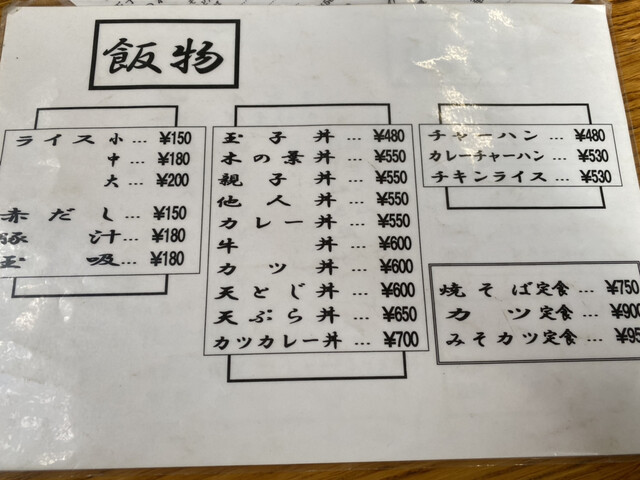 飯物
ライス 小 … ¥150
中 … ¥180
大 … ¥200
赤だし … ¥150
豚汁 … ¥180
玉吸 … ¥180
玉子丼 … ¥480
木の葉丼 … ¥550
親子丼 … ¥550
他人丼 … ¥550
カレー丼 … ¥550
牛丼 … ¥600
カツ丼 … ¥600
天とじ丼 … ¥600
天ぷら丼 … ¥650
カツカレー丼 … ¥700
チャーハン … ¥480
カレーチャーハン … ¥530
チキンライス … ¥530
焼そば定食 … ¥750
カツ定食 … ¥900
みそカツ定食 … ¥95